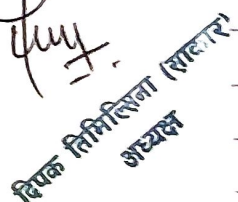 दिपक तिमिल्सिना (साकार)
अध्यक्ष